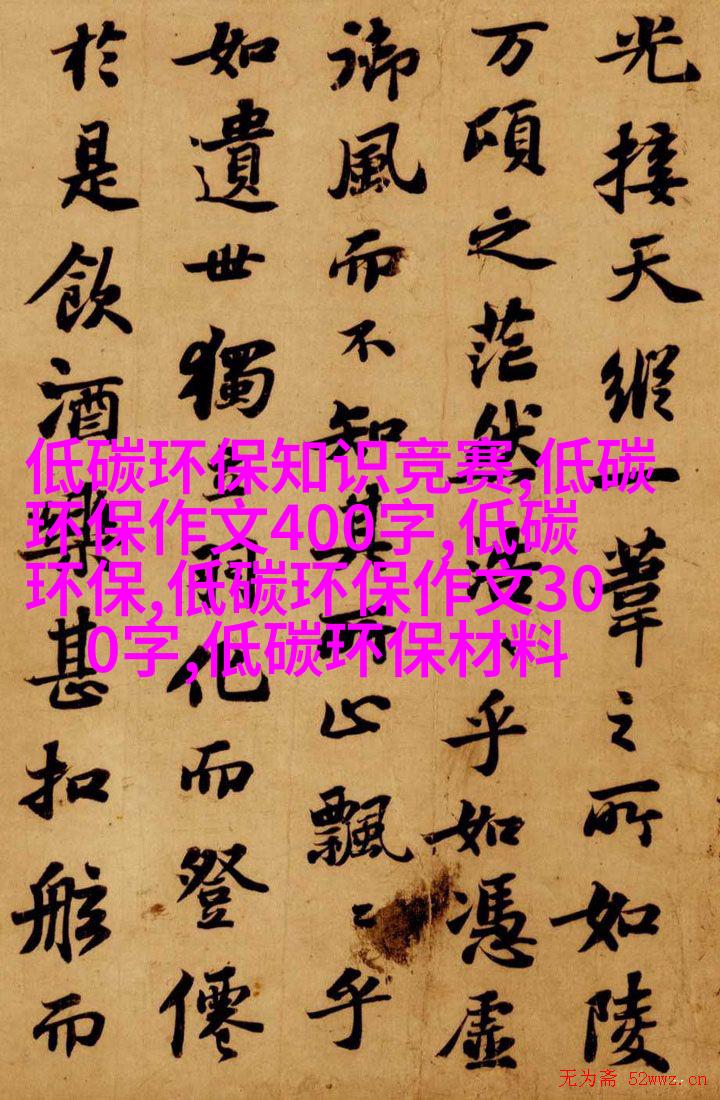 光接天縱一葦之所如陵
万頃之茫然浩〻乎如憑虛
御風而不知其所止飄〻乎
如遺世獨立羽化而登僊
於是飲酒樂甚扣舷而
低碳环保知识竞赛,低碳
环保作文400字,低碳
环保,低碳环保作文30
0字,低碳环保材料
无为斋 52wwz.cn